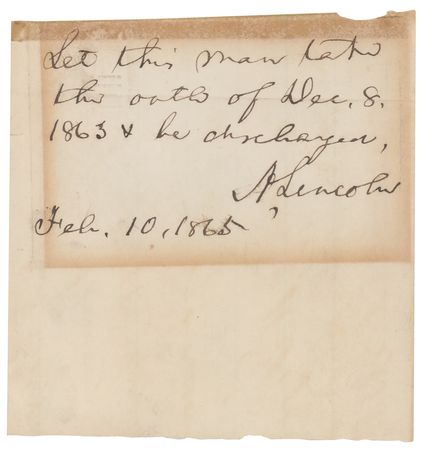 Let this man take
the oath of Dec. 8.
1863 & be discharged,
A. Lincoln
Feb. 10, 1865